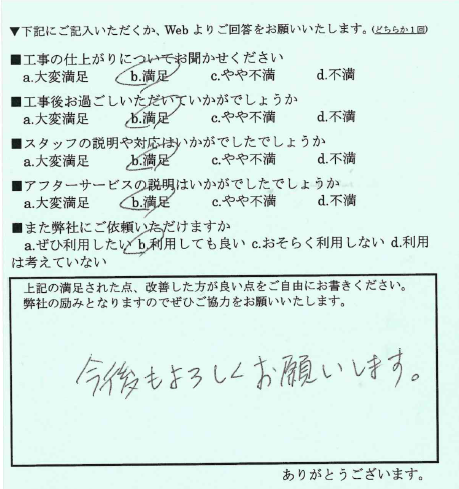 ▼下記にご記入いただくか、Web よりご回答をお願いいたします。(どちらか1回)
■工事の仕上がりについてお聞かせください
a.大変満足 b.満足 c.やや不満 d.不満
■工事後お過ごしいただいていかがでしょうか
a.大変満足 b.満足 c.やや不満 d.不満
■スタッフの説明や対応はいかがでしたでしょうか
a.大変満足 b.満足 c.やや不満 d.不満
■アフターサービスの説明はいかがでしたでしょうか
a.大変満足 b.満足 c.やや不満 d.不満
■また弊社にご依頼いただけますか
a.ぜひ利用したい b.利用しても良い c.おそらく利用しない d.利用
は考えていない
上記の満足された点、改善した方が良い点をご自由にお書きください。
弊社の励みとなりますのでぜひご協力をお願いいたします。
今後もよろしくお願いします。
ありがとうございます。